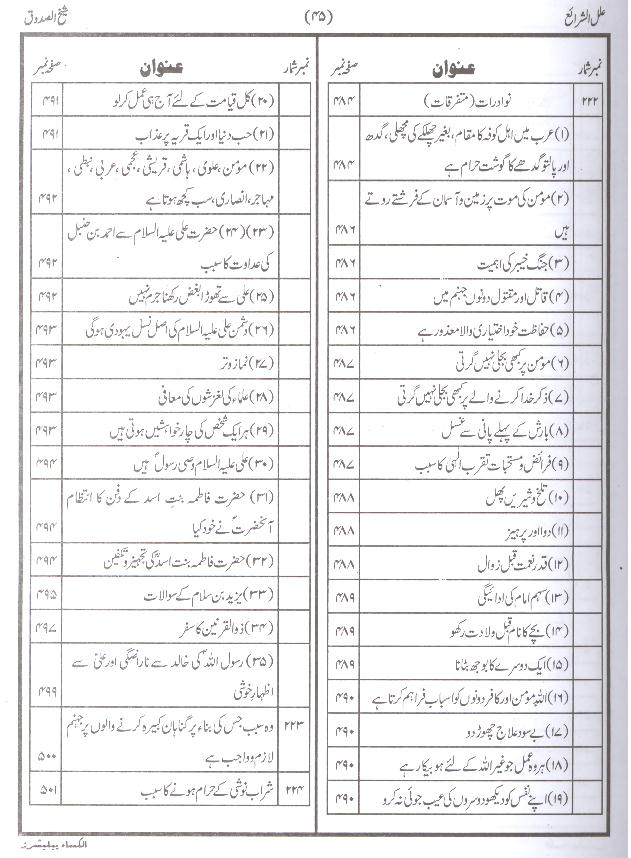 علل الشرائع (۴۵) شیخ الصدوق
نمبر شمار عنوان صفحہ نمبر
۲۲۲ نوادرات (متفرقات) ۴۸۴
(۱) عرب میں اہل کوفہ کا مقام، بغیر چھلکے کی مچھلی، گدھ
اور پالتو گدھے کا گوشت حرام ہے ۴۸۴
(۲) مومن کی موت پر زمین و آسمان کے فرشتے روتے
ہیں ۴۸۶
(۳) جنگ خیبر کی اہمیت ۴۸۶
(۴) قاتل اور مقتول دونوں جہنم میں ۴۸۶
(۵) حفاظت خود اختیاری والا معذور ہے ۴۸۶
(۶) مومن پر کبھی بجلی نہیں گرتی ۴۸۷
(۷) ذکر خدا کرنے والے پر کبھی بجلی نہیں گرتی ۴۸۷
(۸) بارش کے پہلے پانی سے غسل ۴۸۷
(۹) فرائض و مستحبات تقرب الٰہی کا سبب ۴۸۷
(۱۰) تلخ و شیریں پھل ۴۸۸
(۱۱) دوا اور پرہیز ۴۸۸
(۱۲) قدر نعمت قبل زوال ۴۸۸
(۱۳) سہم امام کی ادائیگی ۴۸۹
(۱۴) بچے کا نام قبل ولادت رکھو ۴۸۹
(۱۵) ایک دوسرے کا بوجھ بٹانا ۴۸۹
(۱۶) اللہ مومن اور کافر دونوں کو اسباب فراہم کرتا ہے ۴۹۰
(۱۷) بے سود علاج چھوڑ دو ۴۹۰
(۱۸) ہر وہ عمل جو غیر اللہ کے لئے ہو بیکار ہے ۴۹۰
(۱۹) اپنے نفس کو دیکھو دوسروں کی عیب جوئی نہ کرو ۴۹۰
نمبر شمار عنوان صفحہ نمبر
(۲۰) کل قیامت کے لئے آج ہی عمل کرلو ۴۹۱
(۲۱) حب دنیا اور ایک قریہ پر عذاب ۴۹۱
(۲۲) مومن، علوی، ہاشمی، قریشی، عجمی، عربی، نبطی،
مہاجر، انصاری، سب کچھ ہوتا ہے ۴۹۲
(۲۳) (۲۴) حضرت علی علیہ السلام سے احمد بن حنبل
کی عداوت کا سبب ۴۹۲
(۲۵) علی سے تھوڑا بغض رکھنا جرم نہیں ۴۹۲
(۲۶) دشمن علی علیہ السلام کی اصل نسل یہودی ہوگی ۴۹۳
(۲۷) نماز وتر ۴۹۳
(۲۸) علماء کی لغزشوں کی معافی ۴۹۳
(۲۹) ہر ایک شخص کی چار خواہشیں ہوتی ہیں ۴۹۳
(۳۰) علی علیہ السلام وصی رسولؐ ہیں ۴۹۴
(۳۱) حضرت فاطمہ بنت اسد کے دفن کا انتظام
آنحضرتؐ نے خود کیا ۴۹۴
(۳۲) حضرت فاطمہ بنت اسدؓ کی تجہیز و تکفین ۴۹۴
(۳۳) یزید بن سلام کے سوالات ۴۹۵
(۳۴) ذوالقرنین کا سفر ۴۹۷
(۳۵) رسول اللہؐ کی خالد سے ناراضگی اور علیؑ سے
اظہار خوشی ۴۹۹
۲۲۳ وہ سبب جس کی بناء پر گناہان کبیرہ کرنے والوں پر جہنم
لازم و واجب ہے ۵۰۰
۲۲۴ شراب نوشی کے حرام ہونے کا سبب ۵۰۱
الکساء پبلیشرز